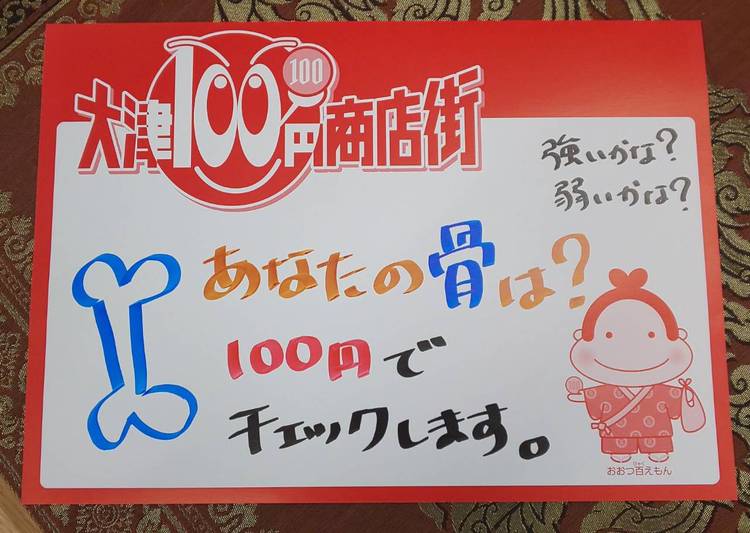 大津100円商店街
100
強いかな?
弱いかな?
あなたの骨は?
100円で
チェックします。
おおつ百えもん
ひゃく